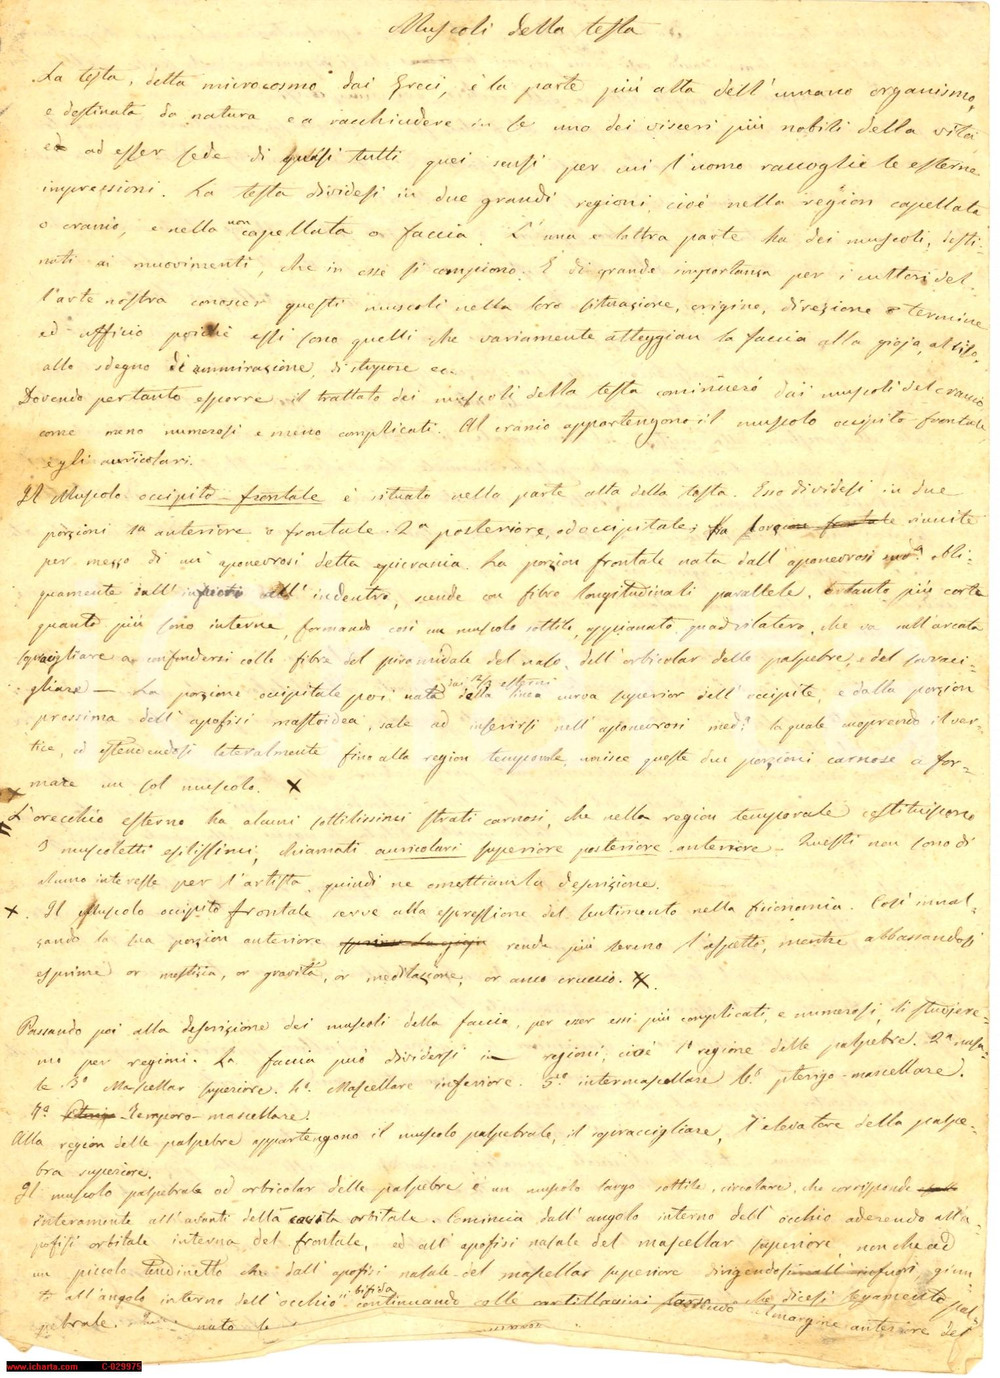 Muscoli della testa
La testa, detta microcosmo dai Greci, è la parte più alta dell'umano organismo,
e destinata da natura e a racchiudere in se uno dei visceri più nobili della vita
ed ad esser sede di quasi tutti quei sensi per cui l'uomo raccoglie le esterne
impressioni. La testa dividesi in due grandi regioni cioè nella region capellata
o cranio, e nella non capellata o faccia. L'una e l'altra parte ha dei muscoli, desti-
nati ai muovimenti, che in esse si compiono. È di grande importanza per i cultori del-
l'arte nostra conoscer questi muscoli nella loro situazione, origine, direzione e termine
ed ufficio poichè essi sono quelli che variamente atteggian la faccia alla gioja, al riso,
allo sdegno di ammirazione, di stupore ec.
Dovendo pertanto esporre il trattato dei muscoli della testa comincierò dai muscoli del cranio
come meno numerosi e meno complicati. Al cranio appartengono il muscolo occipito-frontale,
e gli auricolari.
Il Muscolo occipito-frontale è situato nella parte alta della testa. Esso dividesi in due
porzioni 1a anteriore o frontale. 2a posteriore, od occipitale; riunite
per mezzo di un'aponevrosi detta epicrania. La porzion frontale nata dall'aponevrosi obli-
quamente dall' all'indentro, scende con fibre longitudinali parallele, tanto più corte
quanto più sono interne, formando così un muscolo sottile, appianato, quadrilatero, che va sull'arcata
sopracigliare a confondersi colle fibre del piramidale del naso, dell'orbicolar delle palpebre, e del sovraci-
gliare — La porzione occipitale poi nata dai 2/3 esterni della linea curva superior dell'occipite, e dalla porzion
prossima dell'apofisi mastoidea, sale ad inserirsi nell'aponevrosi med.a la quale cooprendo il ver-
tice, ed estendendosi lateralmente fino alla region temporale, unisce queste due porzioni carnose a for-
mare un sol muscolo. X
L'orecchio esterno ha alcuni sottilissimi strati carnosi, che nella region temporale costituiscono
3 muscoletti esilissimi, chiamati auricolari superiore posteriore anteriore — Questi non sono di
alcuno interesse per l'artista, quindi ne omettiam la descrizione.
X. Il Muscolo occipito frontale serve alla espressione del sentimento nella fisionomia. Così innal-
zando la sua porzion anteriore rende più sereno l'aspetto, mentre abbassandosi
esprime or mestizia, or gravità, or meditazione, or anco cruccio. X.
Passando poi alla descrizione dei muscoli della faccia, per esser essi più complicati, e numerosi, li studiere-
mo per regioni. La faccia può dividersi in regioni, cioè 1a regione delle palpebre. 2a nasa-
le 3a Mascellar superiore. 4a. Mascellare inferiore. 5a intermascellare 6a pterigo-mascellare.
7a Temporo-mascellare.
Alla region delle palpebre appartengono il muscolo palpebrale, il sopraccigliare, l'elevatore della palpe-
bra superiore.
Il muscolo palpebrale od orbicolar delle palpebre è un muscolo largo sottile, circolare, che corrisponde
interamente all'avanti della cavità orbitale. Comincia dall'angolo interno dell'occhio aderendo all'a-
pofisi orbitale interna del frontale, ed all'apofisi nasale del mascellar superiore, non che ad
un piccolo tendinetto che dall'apofisi nasale del mascellar superiore dirigendosi giun-
ti all'angolo interno dell'occhio si bifida continuando colle cartillagini che dicesi legamento pal-
pebrale. nato le al margine anteriore del
www.icharta.com C-029975